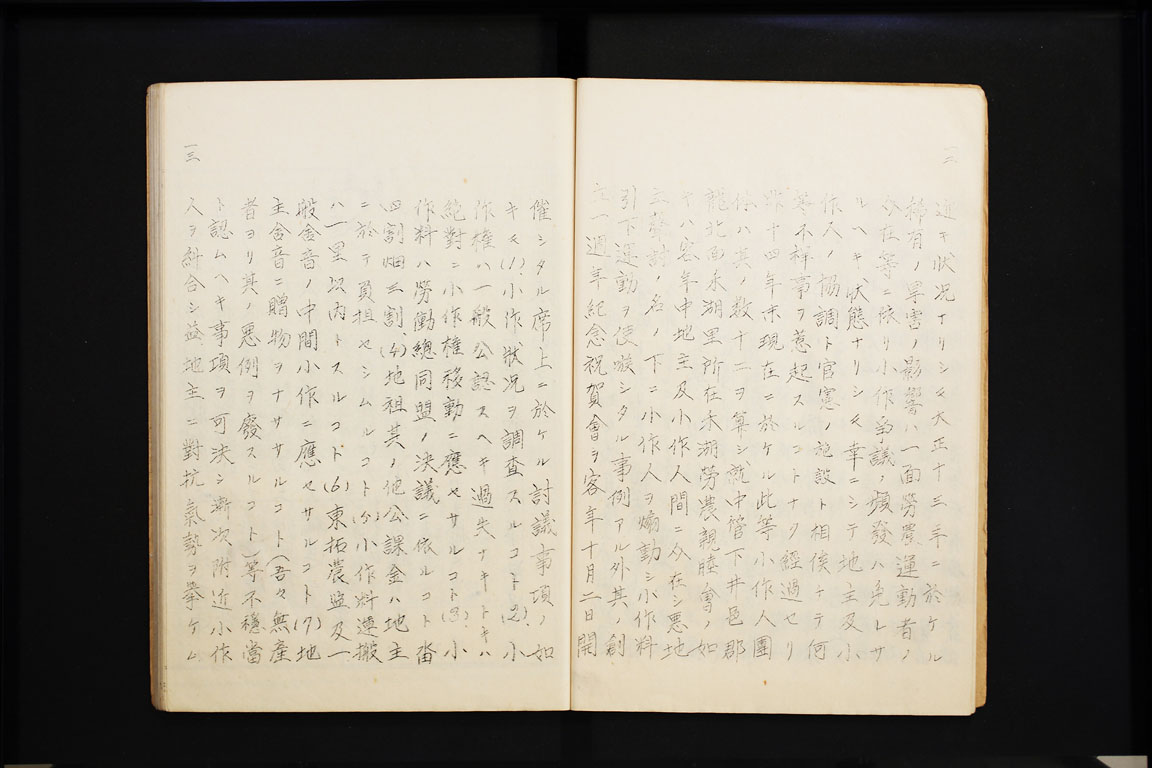 一二
近キ状況ナリシモ大正十三年ニ於ケル
稀有ノ旱害ノ影響ハ一面勞農運動者ノ
介在等ニ依リ小作爭議ノ頻發ハ免レサ
ルヘキ状態ナリシモ幸ニシテ地主及小
作人ノ協調ト官憲ノ施設ト相俟チテ何
等不祥事ヲ惹起スルコトナク經過セリ
昨十四年末現在ニ於ケル此等小作人團
体ハ其ノ数十二ヲ算シ就中管下井邑郡
龍北面禾湖里所在禾湖勞農親睦會ノ如
キハ客年中地主及小作人間ニ介在シ悪地
主聲討ノ名ノ下ニ小作人ヲ煽動シ小作料
引下運動ヲ使嗾シタル事例アル外其ノ創
立一週年紀念祝賀會ヲ客年十月二日開
一三
催シタル席上ニ於ケル討議事項ノ如
キモ(1)、小作状况ヲ調査スルコト(2)、小
作權ハ一般公認スヘキ過失ナキトキハ
絶對ニ小作權移動ニ應セサルコト(3)、小
作料ハ勞働總同盟ノ決議ニ依ルコト畓
四割畑三割、(4)地租其ノ他公課金ハ地主
ニ於テ負担セシムルコト(5)、小作料運搬
ハ一里以内トスルコト(6)東拓農監及一
般舎音ノ中間小作ニ應セサルコト(7)、地
主舎音ニ贈物ヲナササルコト(吾々無産
者ヨリ其ノ悪例ヲ廢スルコト)等不穏當
ト認ムヘキ事項ヲ可決シ漸次附近小作
人ヲ糾合シ益地主ニ對抗氣勢ヲ擧ケム